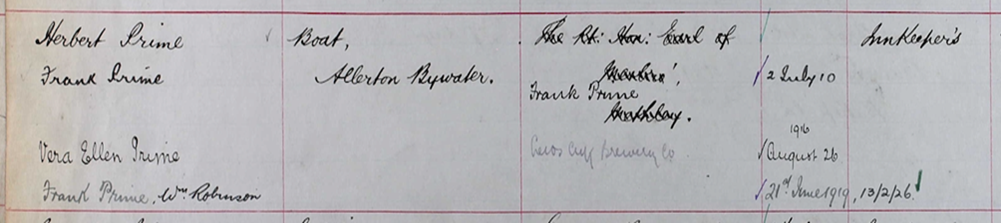 Herbert Prime Boat, The Rt: Hon: Earl of Innkeeper's
Frank Prime Allerton Bywater. 2 July 10
Frank Prime
1916
Vera Ellen Prime Brewery Co August 26
Frank Prime, Wm Robinson 21st June 1919, 13/2/26